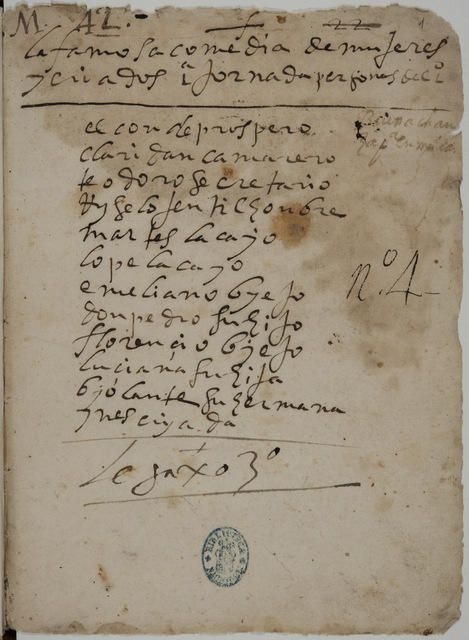 M. 42.
22
1
la famosa comedia de mujeres
y criados 1ª Jornada personas della
el conde prospero
claridan camarero
teodoro secretario
Ryselo jentilhonbre
martes lacayo
lope lacayo
emeliano byejo
don pedro su hijo
florencio byejo
luciana su hija
byolante su hermana
ynes criada
nº 4
Legaxo 3º
BIBLIOTECA